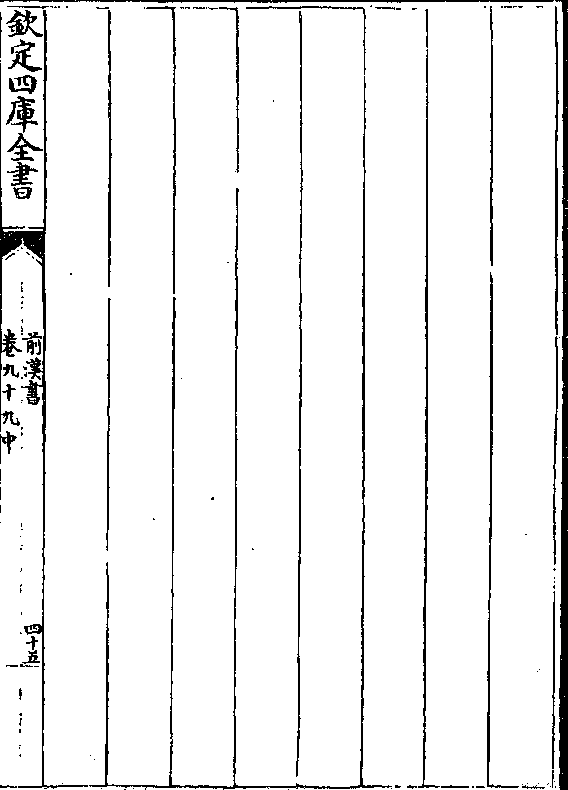 欽定四庫全書
前漢書
卷九十九中
四十五